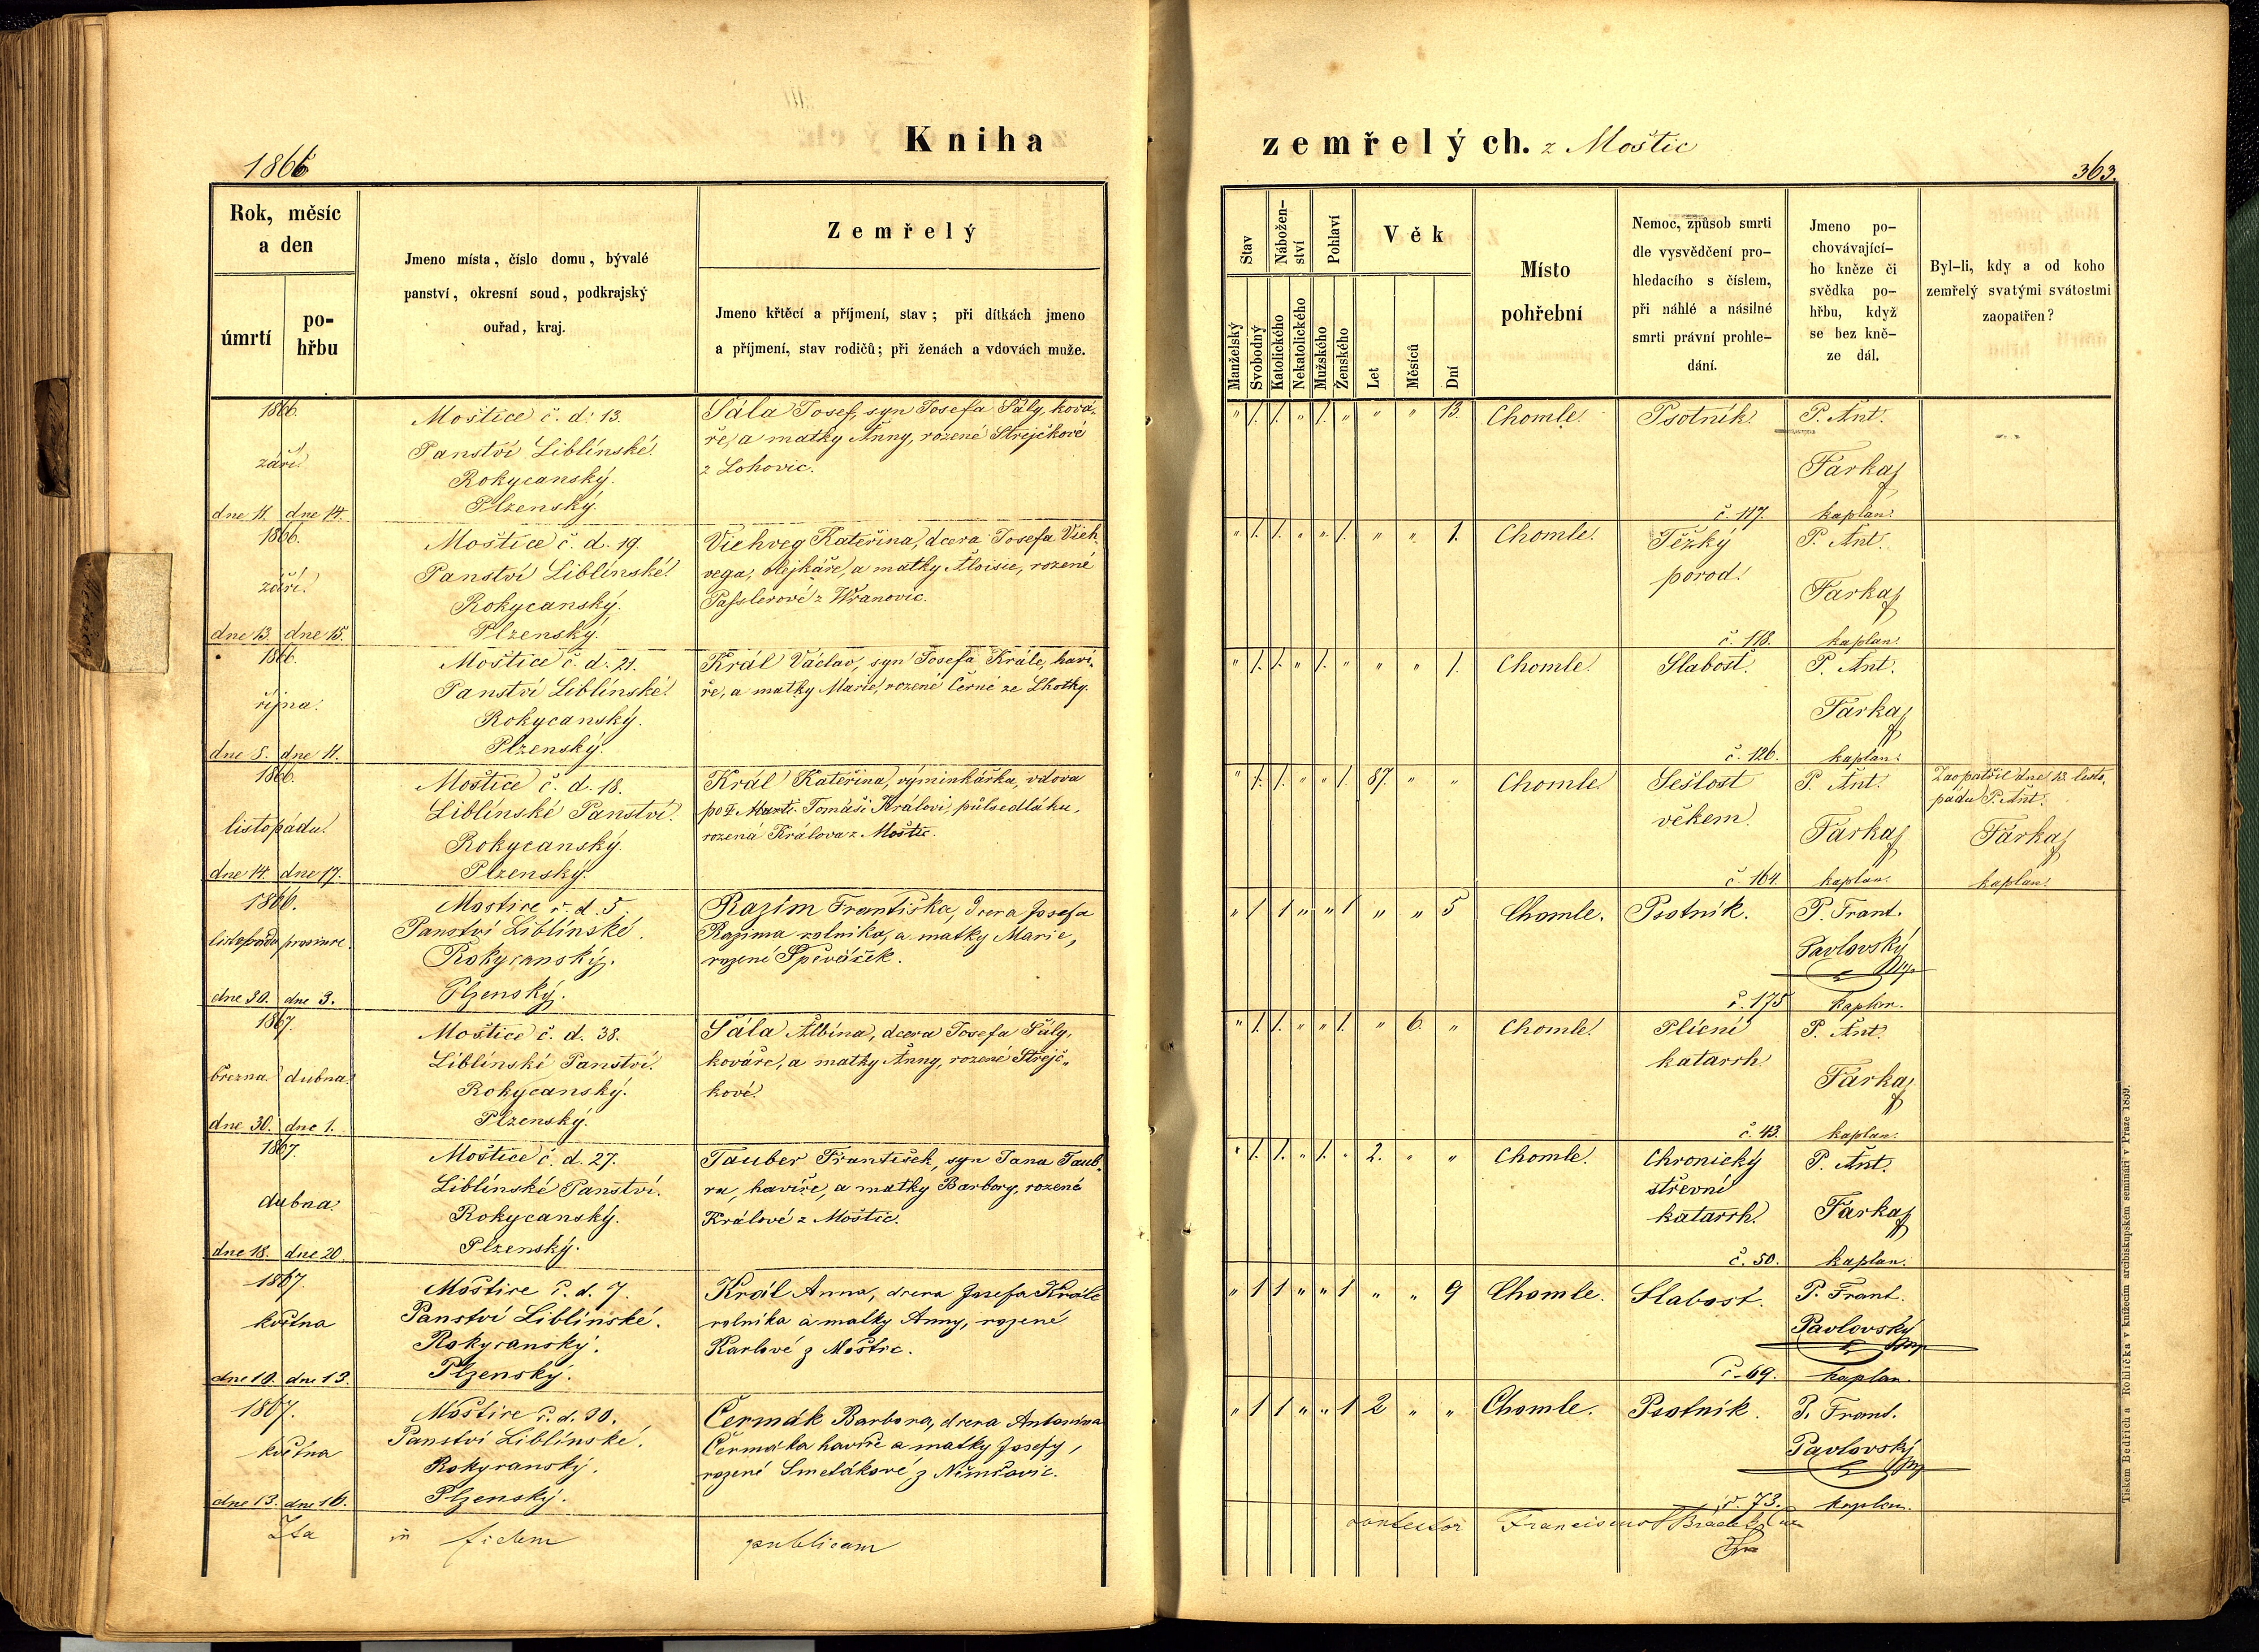 1866
Kniha
zemřelých. z Moštic
363.
Rok, měsíc
a den
úmrtí
po-
hřbu
Jmeno místa, číslo domu, bývalé
panství, okresní soud, podkrajský
ouřad, kraj.
Zemřelý
Jmeno křtěcí a příjmení, stav; při dítkách jmeno
a příjmení, stav rodičů; při ženách a vdovách muže.
Stav
Nábožen-
ství
Pohlaví
Věk
Manželský
Svobodný
Katolického
Nekatolického
Mužského
Ženského
Let
Měsíců
Dní
Místo
pohřební
Nemoc, způsob smrti
dle vysvědčení pro-
hledacího s číslem,
při náhlé a násilné
smrti právní prohle-
dání.
Jmeno po-
chovávající-
ho kněze či
svědka po-
hřbu, když
se bez kně-
ze dál.
Byl-li, kdy a od koho
zemřelý svatými svátostmi
zaopatřen?
1866.
září
dne 11. dne 14.
Moštice č. d. 13.
Panství Liblínské.
Rokycanský.
Plzenský.
Šála Josef, syn Josefa Šály, ková-
ře, a matky Anny, rozené Strejčkové
z Lohovic.
" 1. 1. " 1. " " " 13.
Chomle.
Psotník.
č. 117.
P. Ant.
Farkaj
kaplan.
1866.
září.
dne 13. dne 15.
Moštice č. d. 19.
Panství Liblínské.
Rokycanský.
Plzenský.
Viehveg Kateřina, dcera Josefa Vieh-
vega, olejkáře, a matky Aloisie, rozené
Passlerové z Wranovic.
" 1. 1. " " 1. " " 1.
Chomle.
Těžký
porod.
č. 118.
P. Ant.
Farkaj
kaplan.
1866.
října.
dne 8. dne 11.
Moštice č. d. 21.
Panství Liblínské.
Rokycanský.
Plzenský.
Král Václav, syn Josefa Krále, haví-
ře, a matky Marie, rozené Černé ze Lhotky.
" 1. 1. " 1. " " " 1.
Chomle.
Slabost.
č. 126.
P. Ant.
Farkaj
kaplan.
1866.
listopadu.
dne 14. dne 17.
Moštice č. d. 18.
Liblínské Panství.
Rokycanský.
Plzenský.
Král Kateřina, výminkářka, vdova
po Tomáši Královi, půlsedláku,
rozená Králova z Moštic.
" 1. 1. " " 1. 87. " "
Chomle.
Sešlost
věkem.
č. 164.
P. Ant.
Farkaj
kaplan.
Zaopatřil dne 13. listo-
pádu P. Ant.
Farkaj
kaplan.
1866.
listopadu prosince.
dne 30. dne 3.
Moštice č. d. 5
Panství Liblínské.
Rokycanský.
Plzenský.
Razím Františka, dcera Josefa
Razima rolníka, a matky Marie,
rozené Spěváček.
" 1 1 " " 1 " " 5
Chomle.
Psotník.
č. 175
P. Frant.
Pavlovský
kaplan.
1867.
března. dubna.
dne 30. dne 1.
Moštice č. d. 38.
Liblínské Panství.
Rokycanský.
Plzenský.
Šála Albína, dcera Josefa Šály,
kováře, a matky Anny, rozené Strejč-
kové.
" 1. 1. " " 1. " 6. "
Chomle.
Plícní
katarrh.
č. 43.
P. Ant.
Farkaj
kaplan.
1867.
dubna.
dne 18. dne 20.
Moštice č. d. 27.
Liblínské Panství.
Rokycanský.
Plzenský.
Tauber František, syn Jana Taub-
ra, havíře, a matky Barbory, rozené
Králové z Moštic.
" 1. 1. " 1. " 2. " "
Chomle.
Chronický
střevní
katarrh.
č. 50.
P. Ant.
Farkaj
kaplan.
1867.
května
dne 10. dne 13.
Moštice č. d. 7.
Panství Liblínské.
Rokycanský.
Plzenský.
Král Anna, dcera Josefa Krále
rolníka a matky Anny, rozené
Karlové z Moštic.
" 1 1 " " 1 " " 9
Chomle.
Slabost.
č. 69.
P. Frant.
Pavlovský
kaplan.
1867.
května
dne 13. dne 16.
Moštice č. d. 30.
Panství Liblínské.
Rokycanský.
Plzenský.
Čermák Barbora, dcera Antonína
Čermáka havíře a matky Josefy,
rozené Smetákové z Němčovic.
" 1 1 " " 1 2 " "
Chomle.
Psotník.
č. 73.
P. Frant.
Pavlovský
kaplan.
Ita in fidem publicam
contestor Franciscus
Tiskem Bedřicha Rohlíčka v knížecím arcibiskupském semináři v Praze 1859.